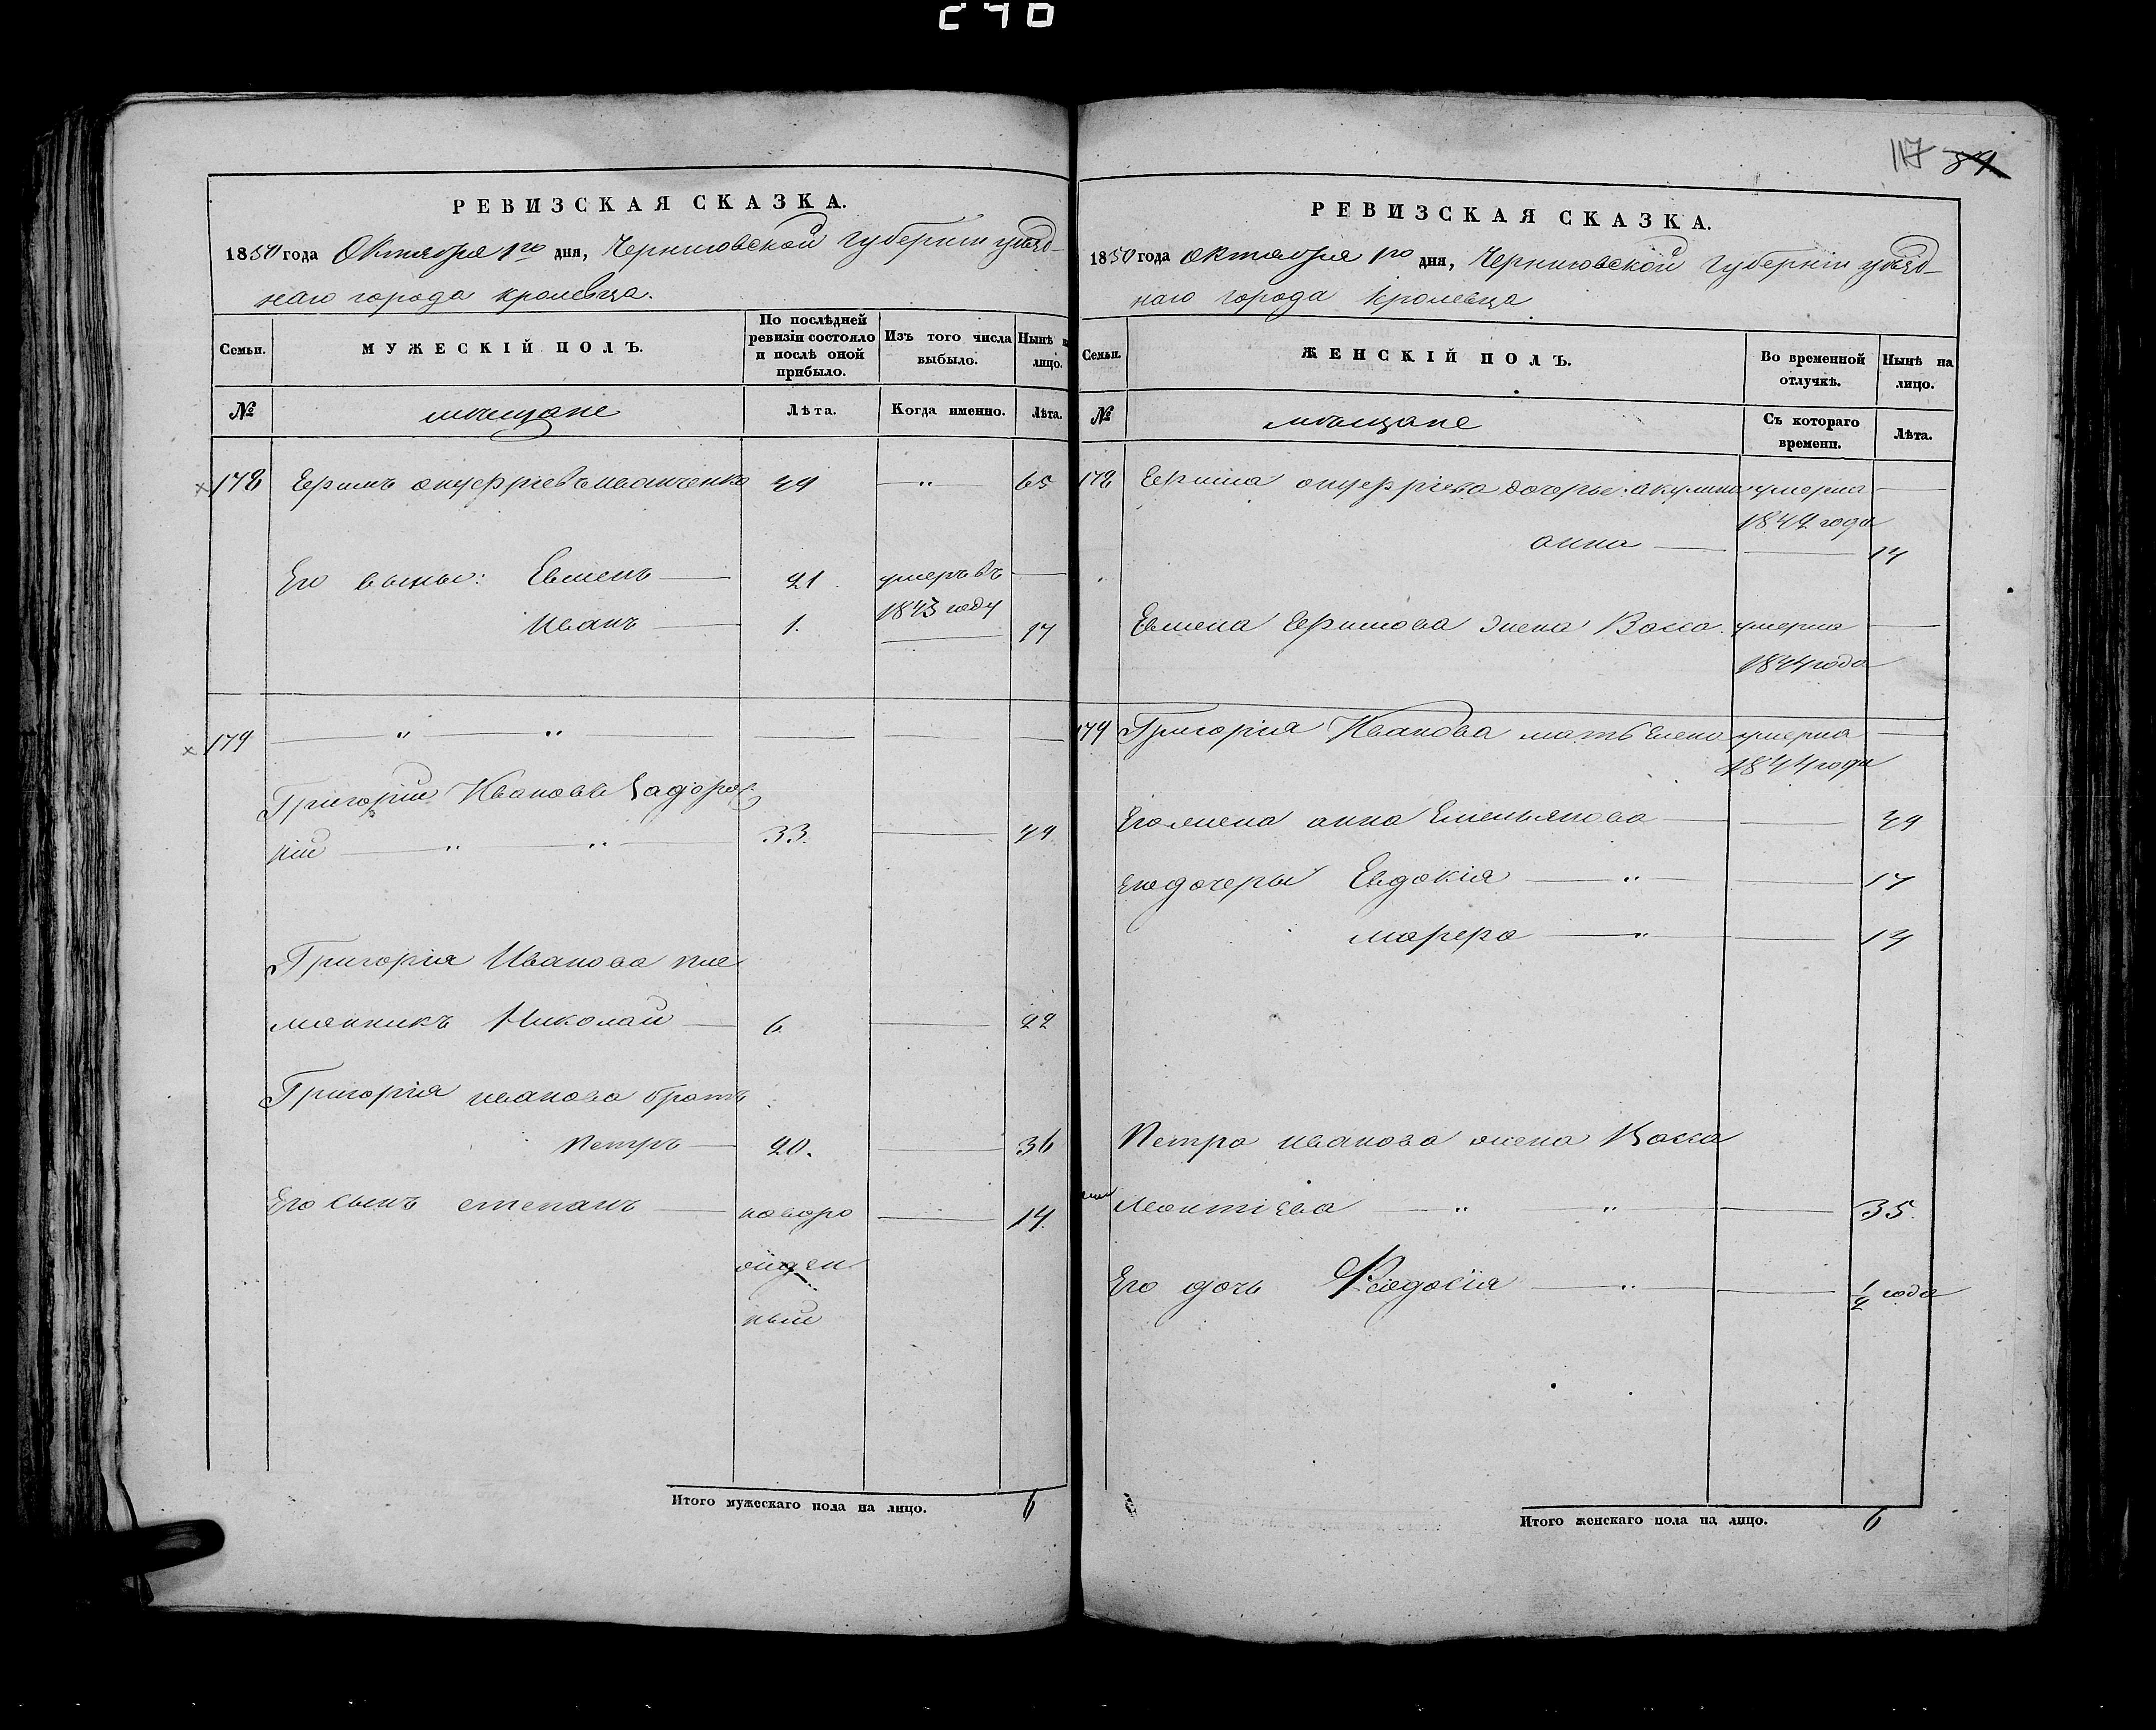 240
117 84
РЕВИЗСКАЯ СКАЗКА.
1850 года Октября 1го дня, Черниговской Губернiи уѣзд-
наго города кролевца.
Семьи.
МУЖЕСКІЙ ПОЛЪ.
По послѣдней ревизіи состояло и послѣ оной прибыло.
Изъ того числа выбыло.
Нынѣ н лицо.
№
мѣщане
Лѣта.
Когда именно.
Лѣта.
178 Ефимъ онуфріевъ иванченко 49 — " — 65
Его сыны: Евменъ — 21 умеръ въ —
1843 году
Иванъ — 1. — 17
179 — " " — — — —
Григорій Ивановъ Задорож
ній — " — " — 33. — 49
Григорія Иванова пле
мянникъ Николай — 6 — 22
Григорія иванова братъ
Петръ — 20. — 36
Его сынъ степанъ — новоро — 14.
жден
ный
Итого мужескаго пола на лицо. 6
РЕВИЗСКАЯ СКАЗКА.
1850 года октября 1го дня, Черниговской Губерніи уѣзд-
наго города Кролевца.
Семьи.
ЖЕНСКІЙ ПОЛЪ.
Во временной отлучкѣ.
Нынѣ на лицо.
№
мѣщане
Съ котораго времени.
Лѣта.
178 Ефима онуфріева дочеры: акулина умерла —
1842 года
анна — — 17
Евмена Ефимова жена Васса умерла —
1844 года
179 Григорія Иванова мать Елена умерла —
1844 года
Его жена анна Емельянова — — 49
Его дочеры Евдокія — " — — 17
марфа — " — — 14
Петра иванова жена Васса
Леонтіева — " " — — 35.
Его дочь Феодосія — " — — 1/2 года
Итого женскаго пола на лицо. 6